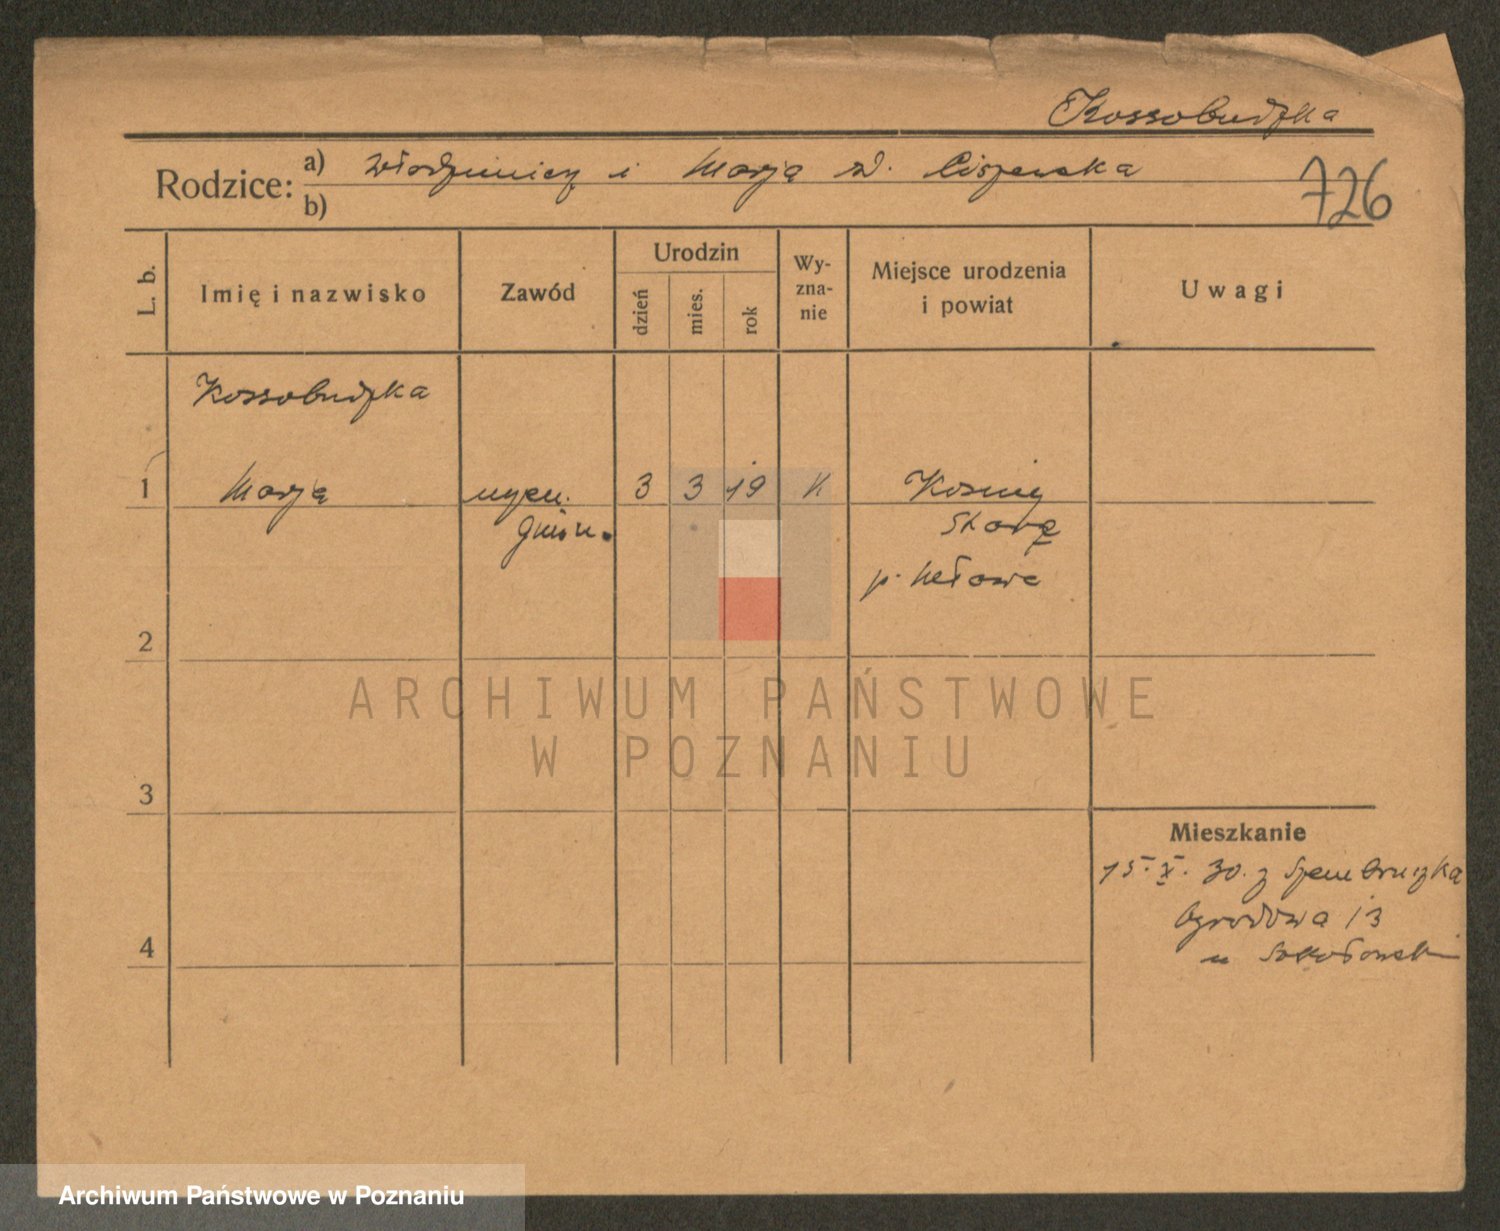 Kossobudzka
Rodzice: a) Włodzimierz i Marja z d. Ciszewska
b)
726
L. b.
Imię i nazwisko
Zawód
Urodzin
dzień
mies.
rok
Wy-
zna-
nie
Miejsce urodzenia
i powiat
Uwagi
Kossobudzka
1 Marja uczen. 3 3 19 K Kosiny
gimn. Stare
p. Mława
2
3
4
Mieszkanie
15.X.30. z Szembruczka
Ogrodowa 13
u Sokołowski
ARCHIWUM PAŃSTWOWE
W POZNANIU
Archiwum Państwowe w Poznaniu